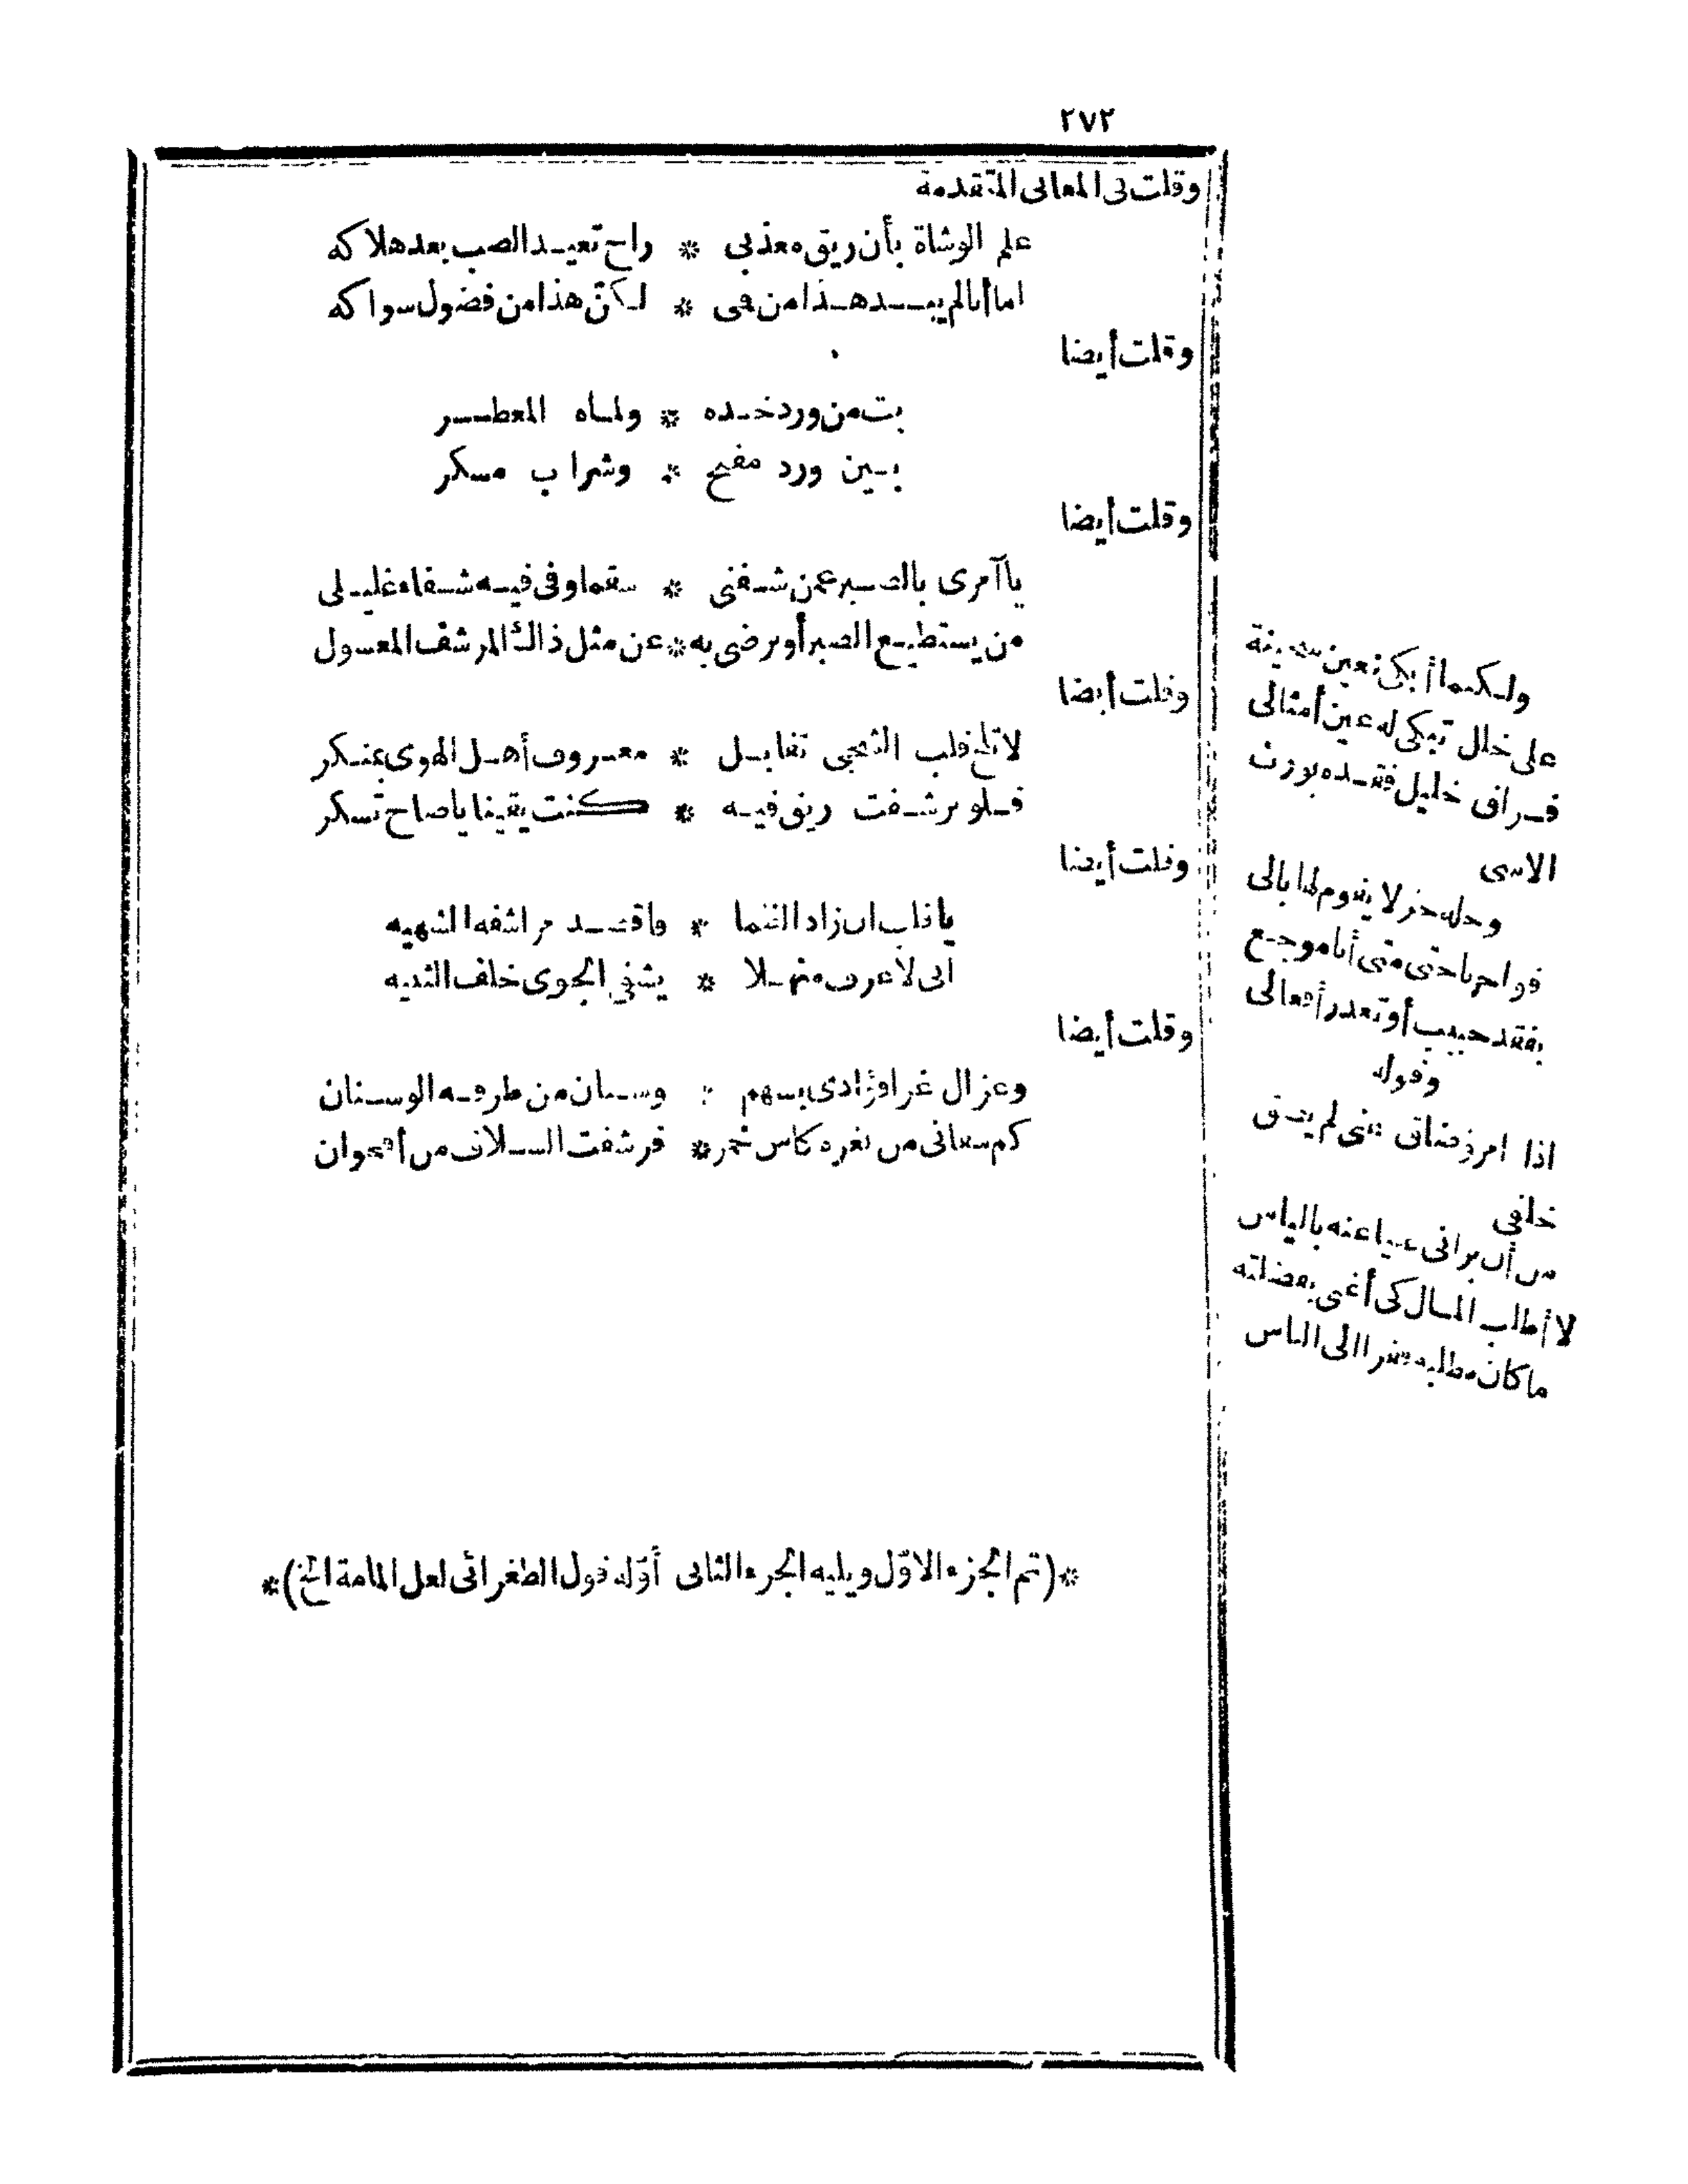 ٢٧٢
وقلت في المعاني المتقدمة
علم الوشاة بأن ريق معذبي * راح تعيد الصب بعد هلاكه
اما أنا لم يبد هذا من فمي * لكنّ هذا من فضول سواكه
وقلت أيضا
بت من ورد خده * ولماه المعطر
بين ورد مفتح * وشراب مسكر
وقلت أيضا
يا آمري بالصبر عمن شفني * سقما وفي فيه شفاء غليلي
من يستطيع الصبر أو يرضى به * عن مثل ذاك المرشف المعسول
وقلت أيضا
لا تلح قلب الشجي تقابل * معروف أهل الهوى بمنكر
فلو ترشفت ريق فيه * كنت يقينا يا صاح تسكر
وقلت أيضا
يا قلب ان زاد الظما * فاقصد مراشفه الشهيه
اني لأعرف منهلا * يشفي الجوى خلف الثنيه
وقلت أيضا
وغزال غزا فؤادي بسهم * وسنان من طرفه الوسنان
كم سقاني من ثغره كاس خمر * فرشفت السلاف من أقحوان
*(تم الجزء الاوّل ويليه الجزء الثاني أوّله قول الطغرائي لعل المامة الخ)*
ولكنما أبكي بعين سخينة
على خلل تبكي له عين أمثالي
فراق خليل فقده يورث
الاسى
وخلة حر لا يقوم لها بالي
فواحربا حتى متى أنا موجع
بفقد حبيب أو تعذر أفعالي
وقوله
اذا امرؤ ضاق عني لم يضق
خلقي
من أن يراني غنيا عنه بالياس
لا أطلب المال كي أغنى بفضلته
ما كان مطلبه فقرا الى الناس